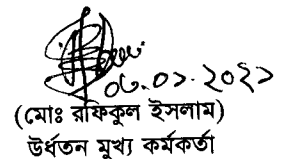 ০৬.০১.২০২১
(মোঃ রফিকুল ইসলাম)
উর্ধতন মুখ্য কর্মকর্তা